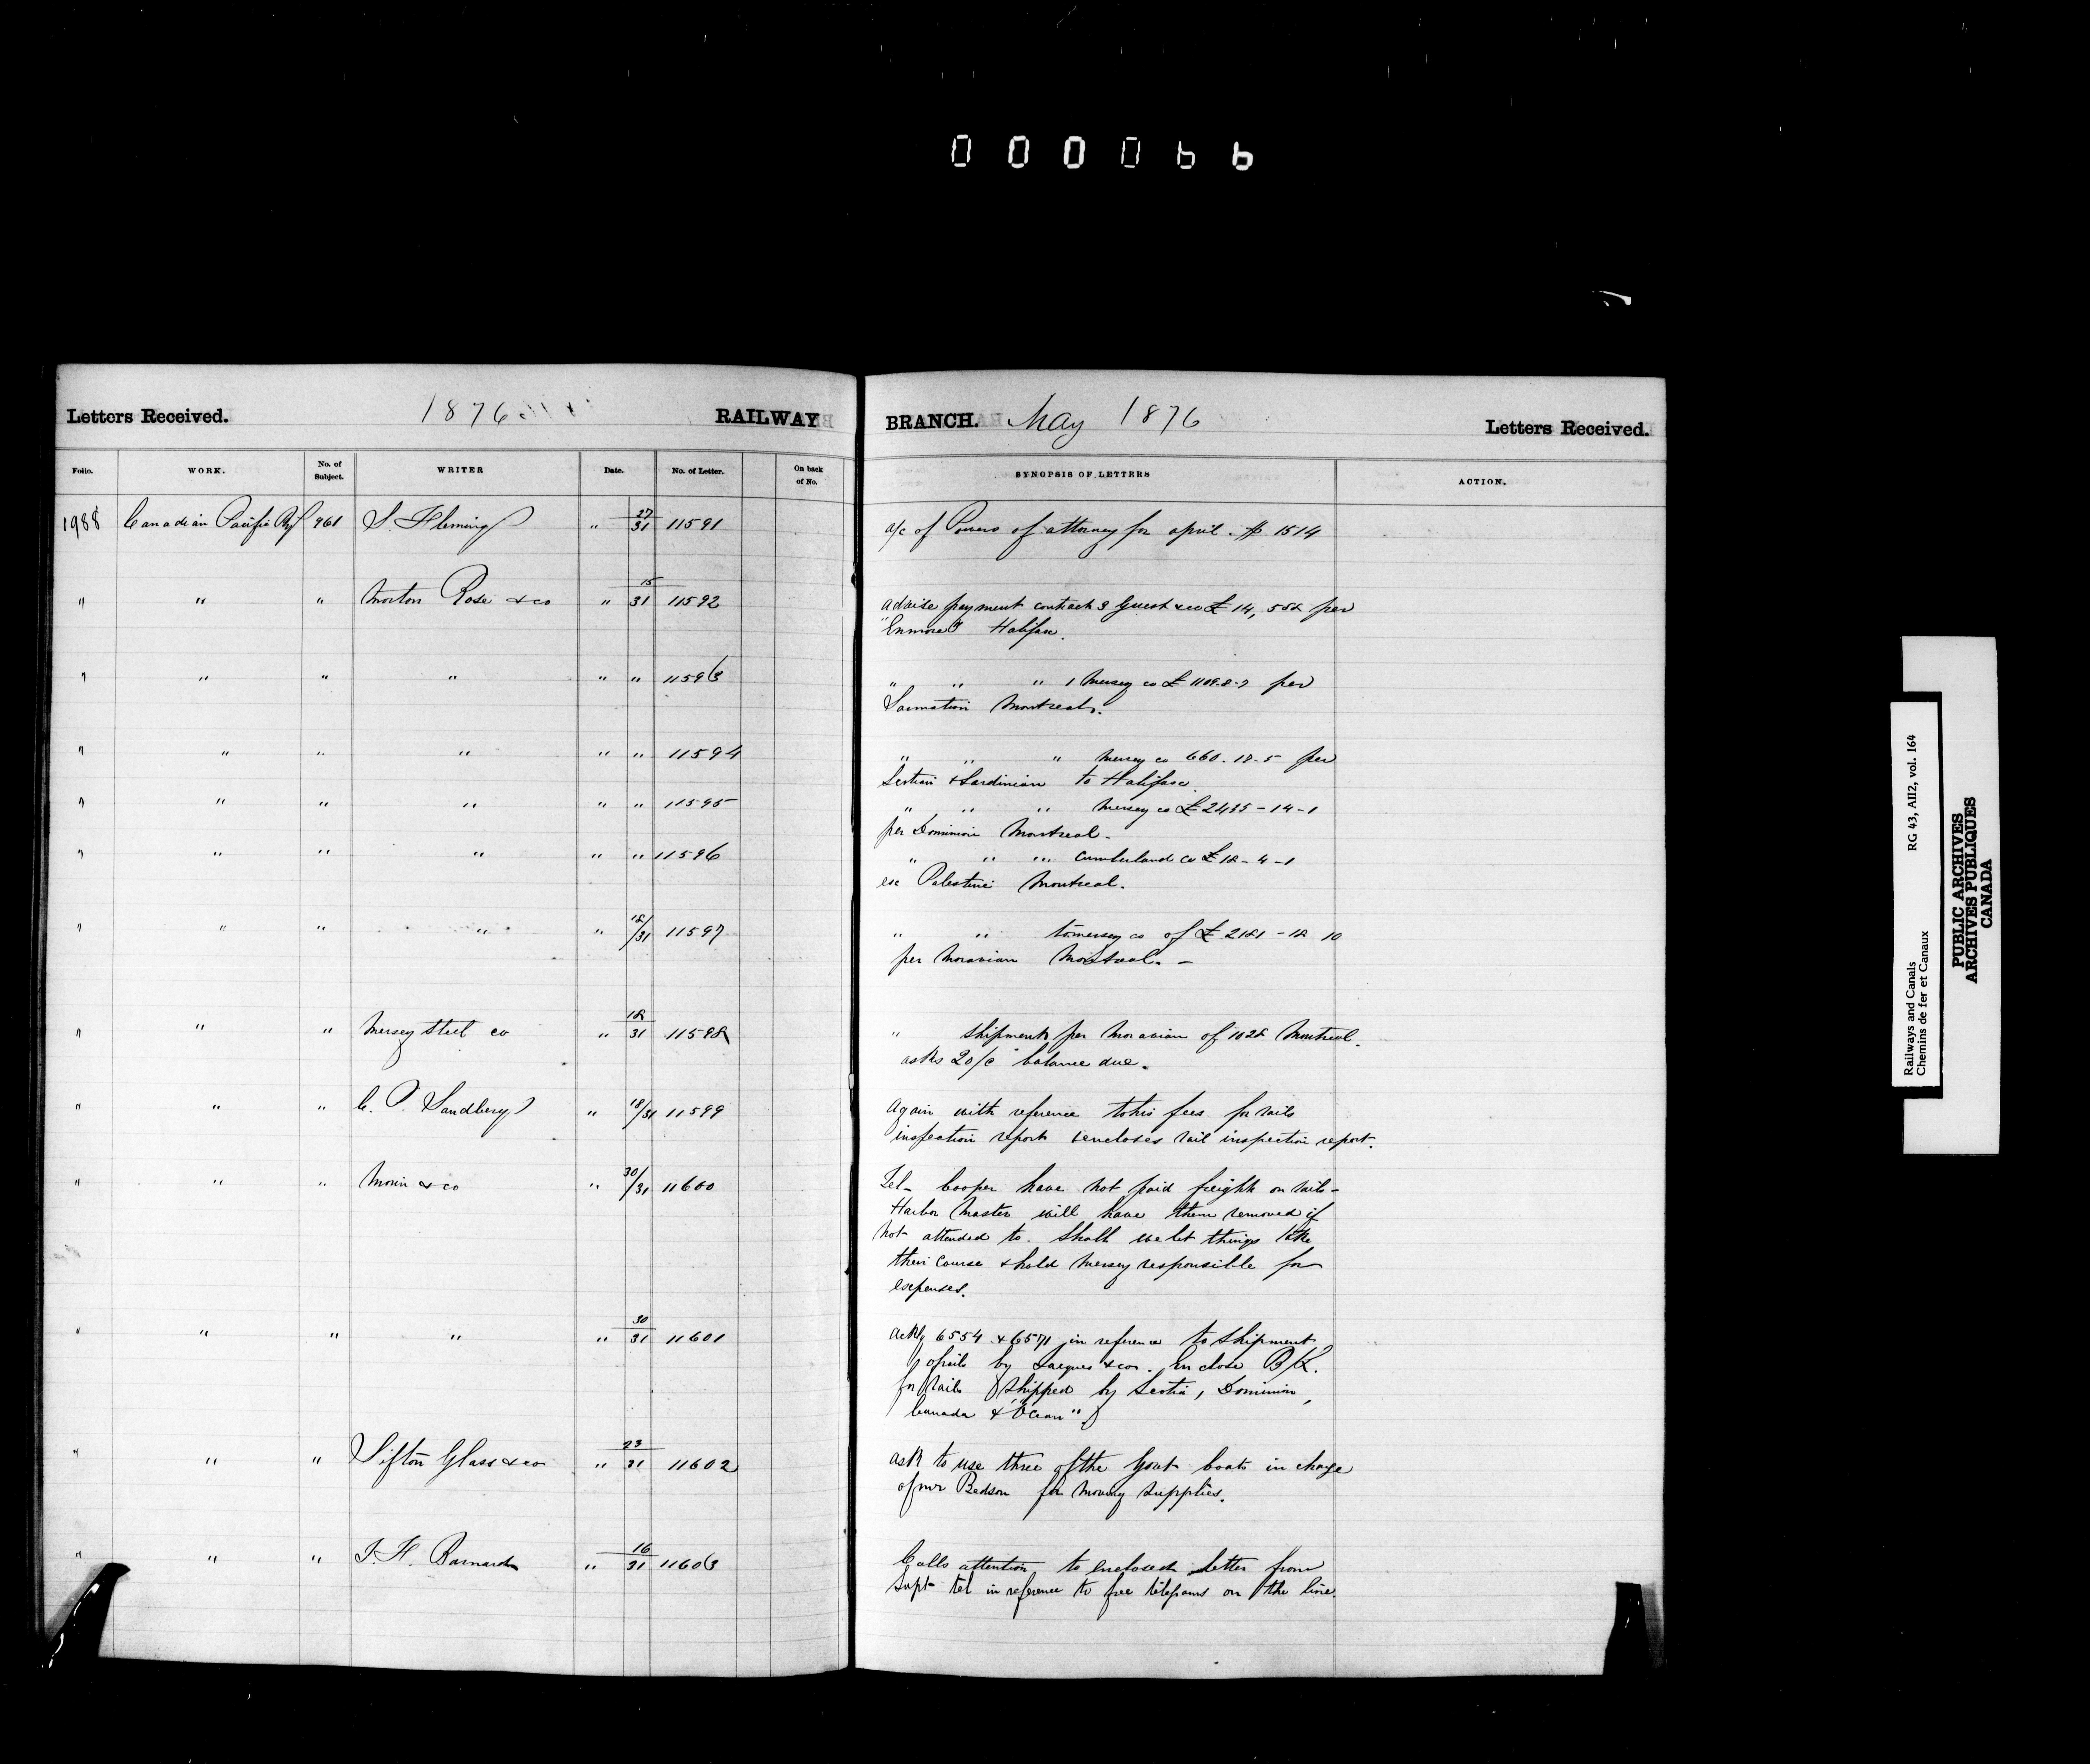 000066
Letters Received. 1876 RAILWAY BRANCH. May 1876 Letters Received.
Folio. WORK. No. of Subject. WRITER Date. No. of Letter. On back of No. SYNOPSIS OF LETTERS ACTION.
1988 Canadian Pacific Ry 961 S. Fleming " 27/31 11591 a/c of Powers of attorney for april. $ 1514
" " " Morton Rose & co " 15/31 11592 advise payment contract 3 Guest & co £ 14, 588 per
"Enmore" Halifax.
" " " " " " 11593 " " " 1 Mersey co £ 1109-8-7 per
Sarmatian Montreal.
" " " " " " 11594 " " " Mersey co 660-18-5 per
Scotian & Sardinian to Halifax.
" " " " " " 11595 " " " Mersey co £ 2435-14-1
per Dominion Montreal -
" " " " " " 11596 " " " Cumberland co £ 18-4-1
ex Palestine Montreal.
" " " " " 18/31 11597 " " to Mersey co of £ 2181-18 10
per Moravian Montreal. -
" " " Mersey Steel co " 18/31 11598 " shipments per Moravian of 1028 Montreal.
asks 20/c balance due.
" " " C. P. Sandberg " 18/31 11599 Again with reference to his fees for rails
inspection report & encloses rail inspection report.
" " " Morin & co " 30/31 11600 Tel- Cooper have not paid freight on rails -
Harbor Master will have them removed if
not attended to. Shall we let things take
their course & hold Mersey responsible for
expenses.
" " " " " 30/31 11601 Ackg 6554 & 6571 in reference to shipment
of rails by Jaques & co. Enclose B/L.
for rails shipped by Scotia, Dominion,
Canada & "Ocean"
" " " Sifton Glass & co " 23/31 11602 ask to use three of the Govt boats in charge
of Mr Bedson for moving supplies.
" " " F. H. Barnard " 16/31 11603 Calls attention to enclosed letter from
Supt tel in reference to free telegrams on the line.
Railways and Canals RG 43, AII2, vol. 164
Chemins de fer et Canaux
PUBLIC ARCHIVES
ARCHIVES PUBLIQUES
CANADA